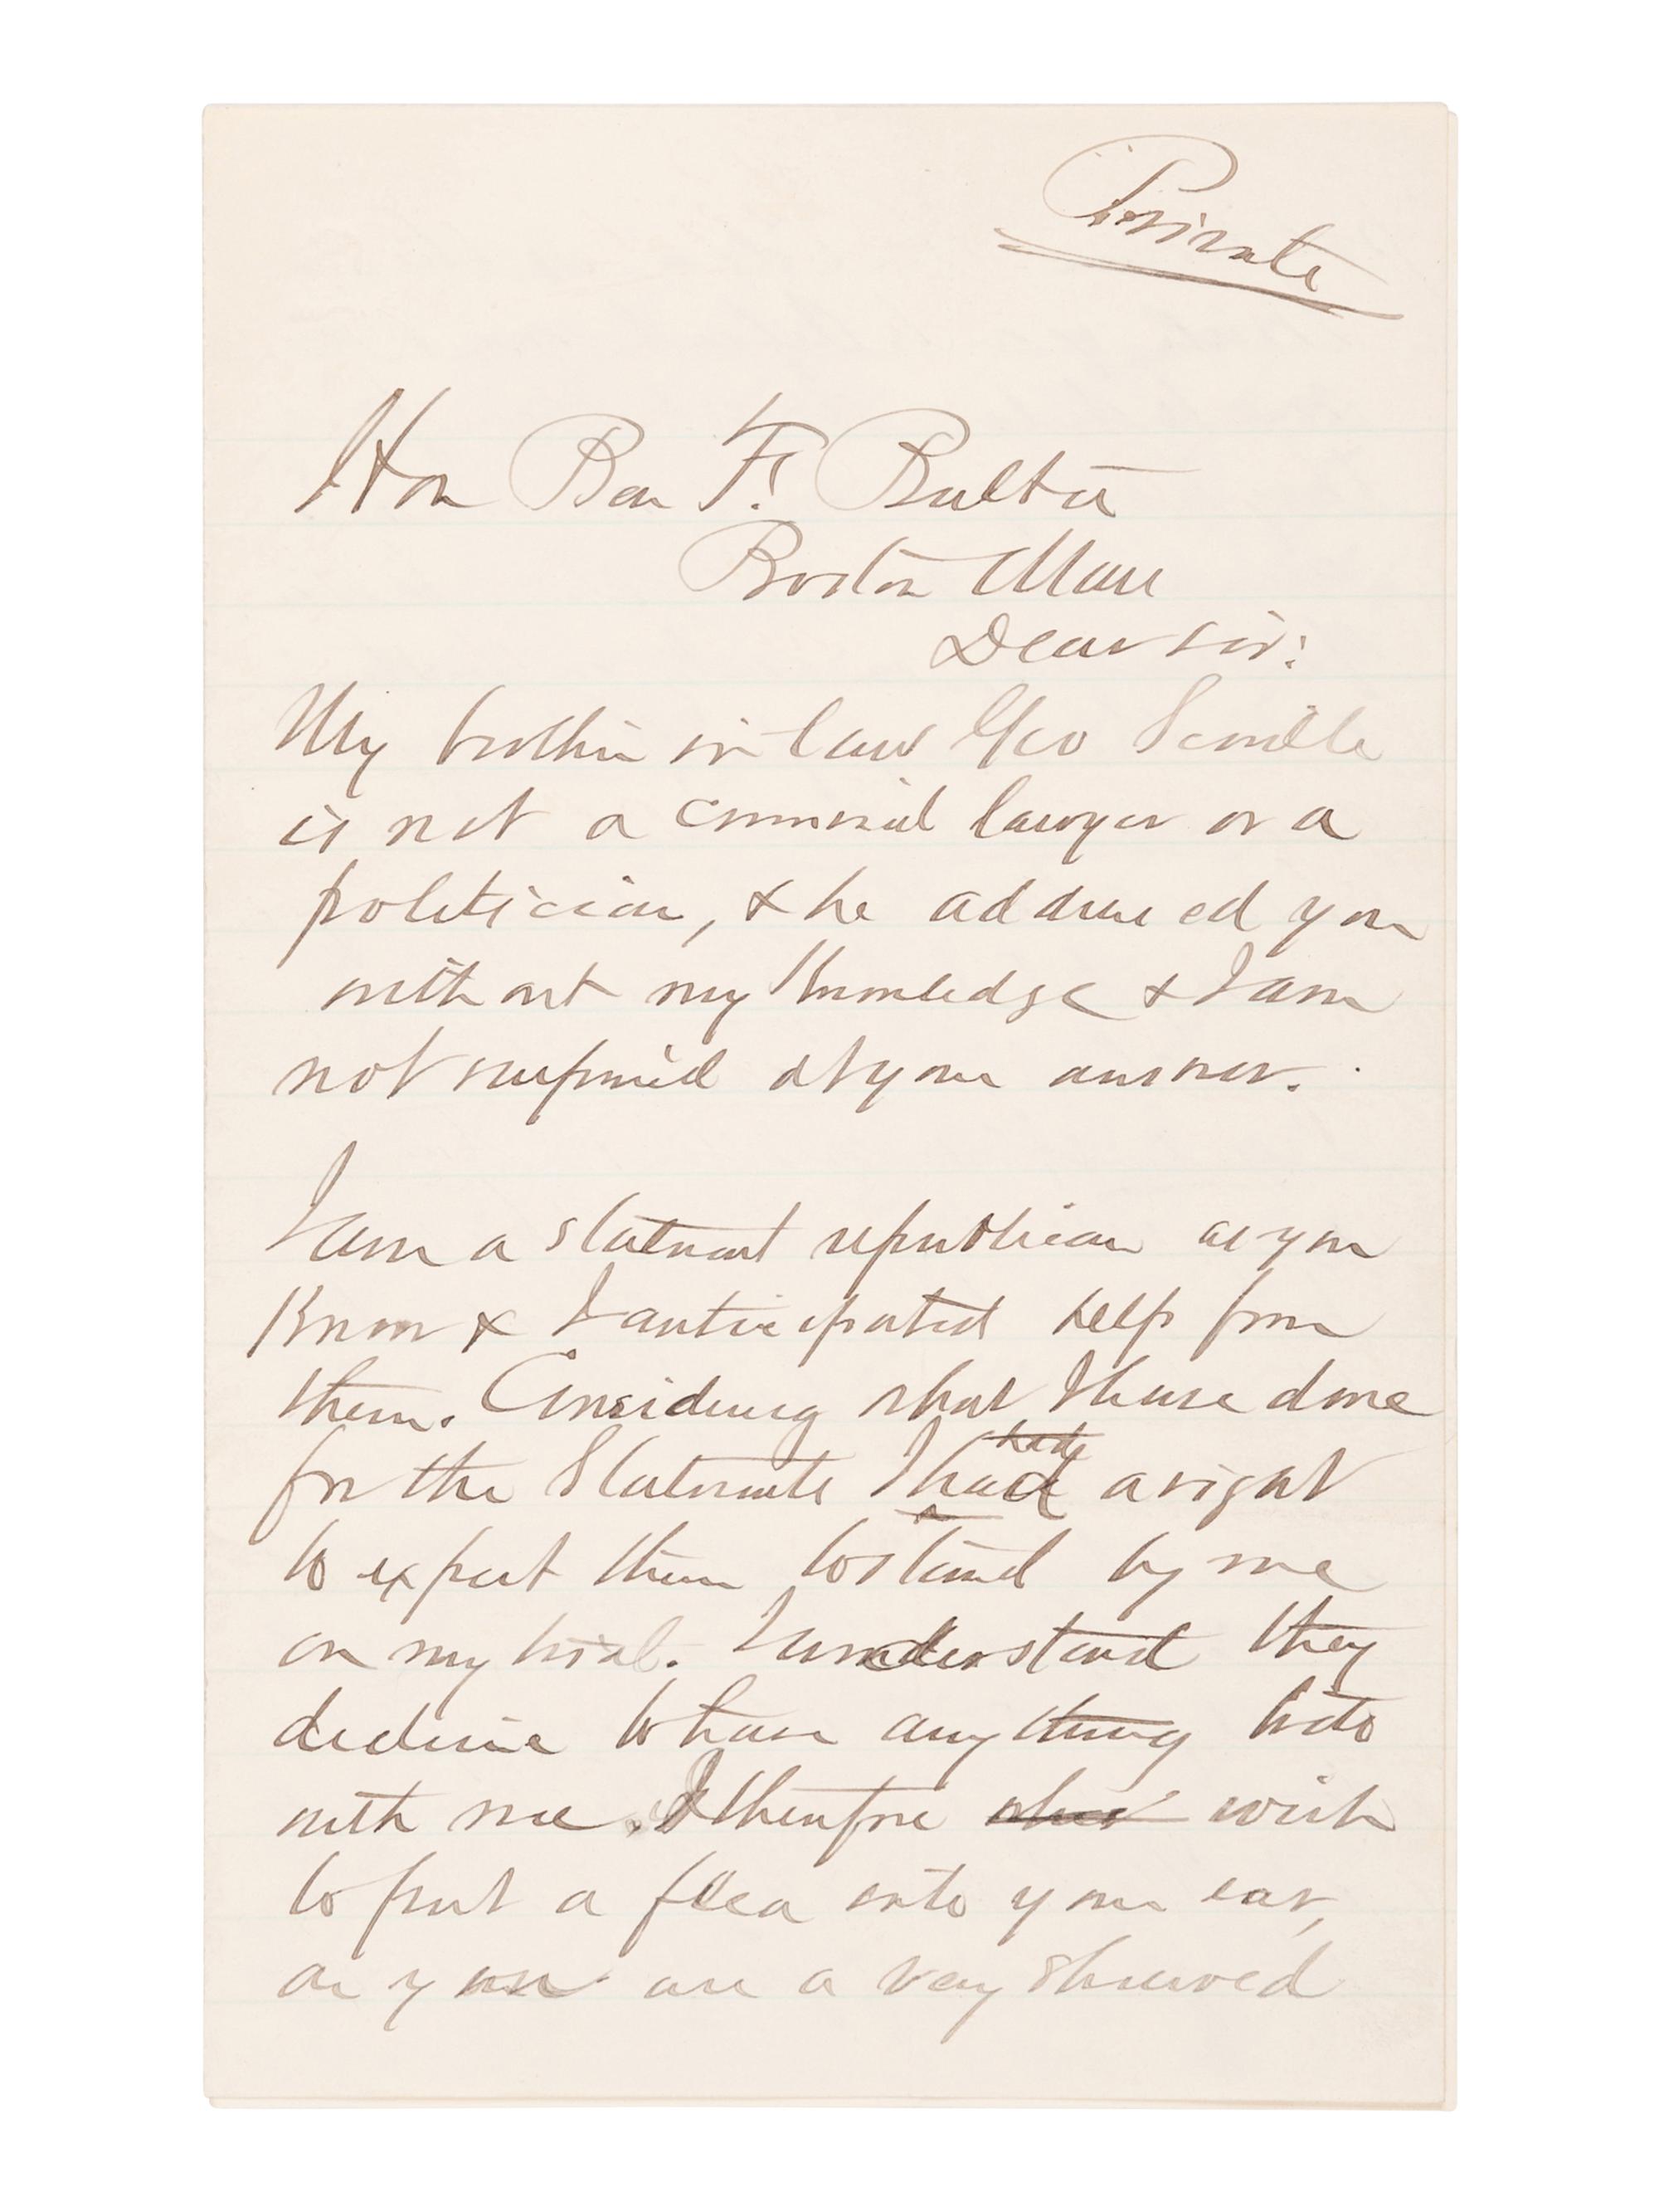 Private
Hon Ben F. Butler
Boston Mass
Dear sir:
My brother in law Geo Scoville
is not a criminal lawyer or a
politician, & he addressed you
without my Knowledge & I am
not surprised at your answer.
I am a stalwart republican as you
Know & I anticipated help from
them. Considering what I have done
for the Stalwarts I had a right
to expect them to stand by me
on my trial. I understand they
decline to have anything to do
with me. I therefore wish
to put a flea into your ear,
as you are a very shrewed